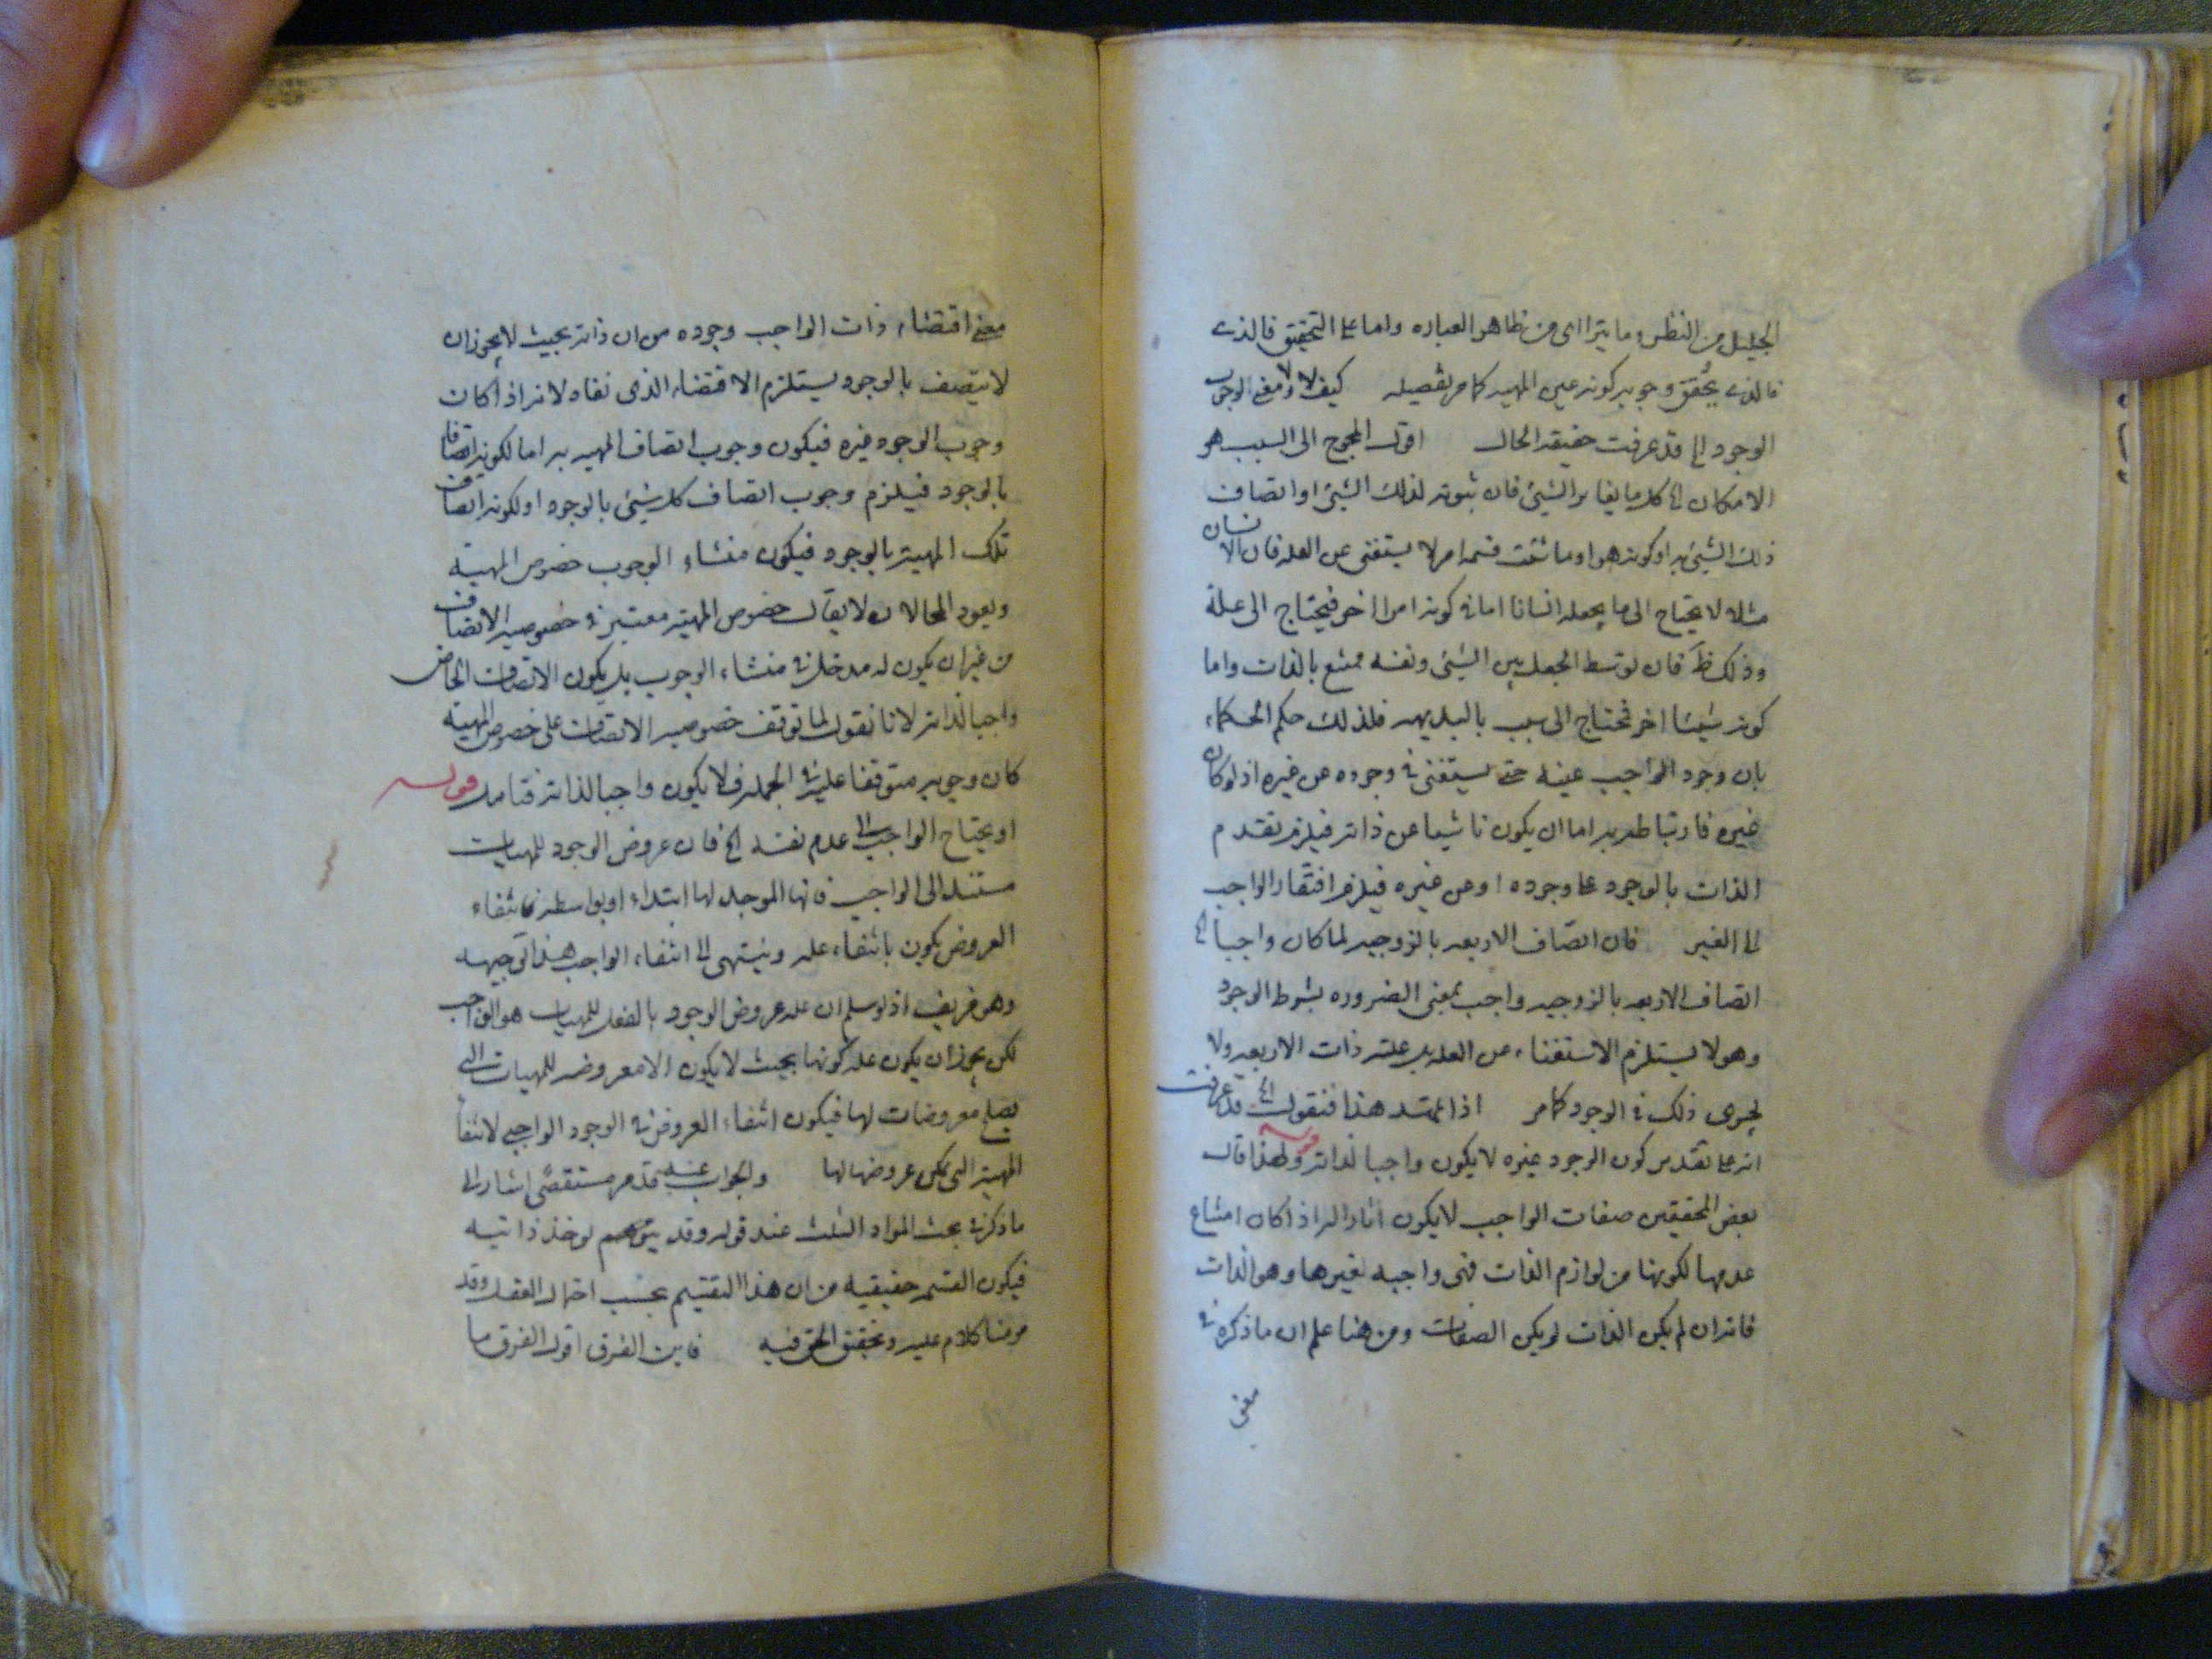 الجليل من النظر وما يترااى من ظاهر العباره واما على التحقيق فالذى
فالذى يحُقق وجوبه كونه عين المهيه كما مر تفصيله كيف لا ومعنى الوجوب
الوجود الخ قد عرفت حقيقه الحال اقول المحوج الى السبب هو
الامكان الخ كل ما يغاير الشيئ فان ثبوته لذلك الشيئ او اتصاف
ذلك الشيئ به او كونه هو او ما شئت فسمه امر لا يستغنى عن العله فان الانسان
مثلا لا يحتاج الى ما يجعله انسانا اما فى كونه امرا اخر فيحتاج الى علة
وذلك ظ فان توسط الجعل بين الشيئ ونفسه ممتنع بالذات واما
كونه شيئا اخر فيحتاج الى سبب بالبديهه فلذلك حكم الحكماء
بان وجود الواجب عينه حتى يستغنى فى وجوده عن غيره اذ لو كان
غيره فارتباطه به اما ان يكون ناشيا عن ذاته فيلزم تقدم
الذات بالوجود على وجوده او عن غيره فيلزم افتقار الواجب
الى الغير فان اتصاف الاربعه بالزوجيه لما كان واجبا الخ
اتصاف الاربعه بالزوجيه واجب بمعنى الضروره بشرط الوجود
وهو لا يستلزم الاستغناء عن العله بل علته ذات الاربعه ولا
يجرى ذلك فى الوجود كما مر اذا تمهد هذا فنقول الخ قد عرفت
انه على تقدير كون الوجود غيره لا يكون واجبا لذاته قوله ولهذا قال
بعض المحققين صفات الواجب لا يكون اثارا له اذ كان امتناع
عدمها لكونها من لوازم الذات فهى واجبه لغيرها وهو الذات
فانه ان لم يكن الذات لم يكن الصفات ومن هنا علم ان ما ذكره فى
معنى
معنى اقتضاء ذات الواجب وجوده من ان ذاته بحيث لا يجوز ان
لا يتصف بالوجود يستلزم الاقتضاء الذى نفاه لانه اذا كان
وجوب الوجود غيره فيكون وجوب اتصاف المهيه به اما لكونه اتصافا
بالوجود فيلزم وجوب اتصاف كل شيئ بالوجود او لكونه اتصاف
تلك المهية بالوجود فيكون منشاء الوجوب خصوص المهية
ويعود المحالان لا يقال خصوص المهية معتبر فى خصوصيه الاتصاف
من غير ان يكون له مدخل فى منشاء الوجوب بل يكون الاتصاف الخاص
واجبا لذاته لانا نقول لما توقف خصوصيه الاتصاف على خصوص المهية
كان وجوبه متوقفا عليه فى الجمله فلا يكون واجبا لذاته فتامل قوله
او يحتاج الواجب الى عدم نفسه الخ فان عروض الوجود للمهيات
مستند الى الواجب فانها الموجد لها ابتداء او بواسطه فانتفاء
العروض يكون بانتفاء علته وينتهى الى انتفاء الواجب هذا توجيهه
وهو مزيف اذ لو سلم ان عله عروض الوجود بالفعل للمهيات هو الواجب
لكن يجوز ان يكون عله كونها بحيث لا يكون الا معروضه للمهيات التى
يصلح معروضات لها فيكون انتفاء العروض فى الوجود الواجبى لانتفاء
المهية التى يمكن عروضها لها والجواب عنه قد مر مستقصًى اشار الى
ما ذكر فى بحث المواد الثلث عند قوله وقد يتوهم يؤخذ ذاتيه
فيكون القسمه حقيقيه من ان هذا التقسيم بحسب احتمال العقل وقد
مر منا كلام عليه وتحقيق الحق فيه فاين الفرق اقول الفرق ما